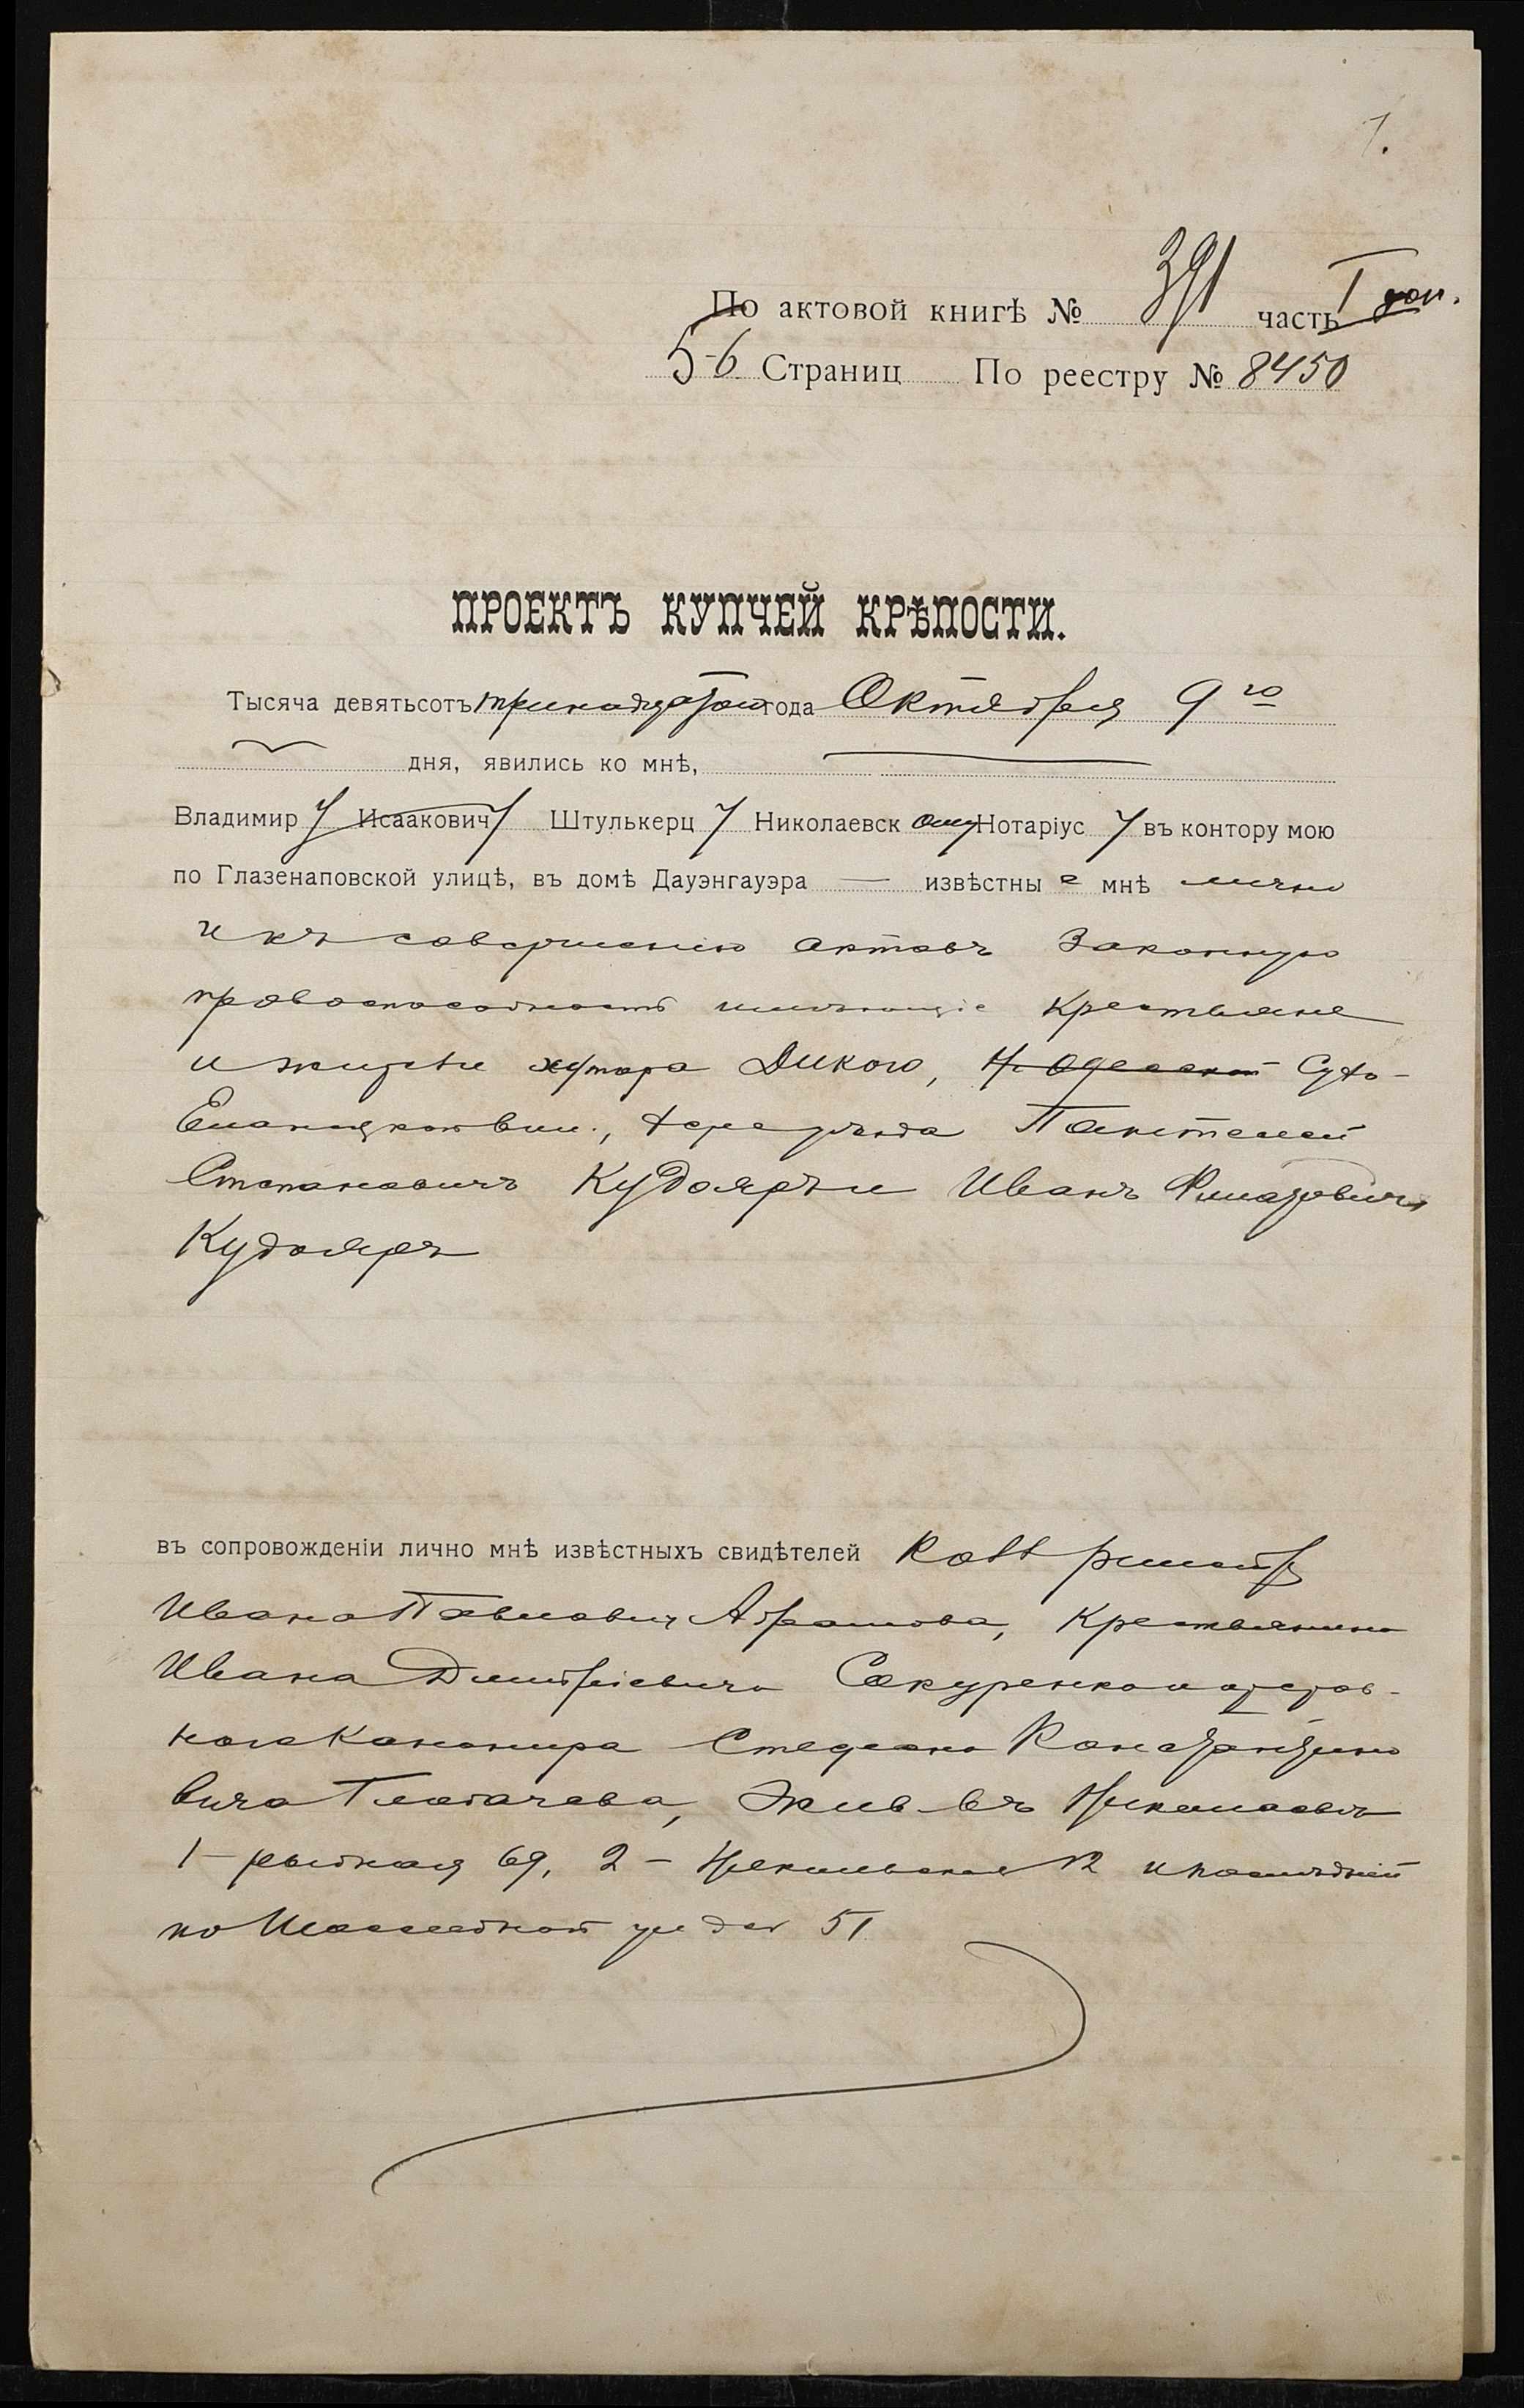 1.
По актовой книгѣ № 391 часть I доп.
5-6 Страниц По реестру № 8450
ПРОЕКТЪ КУПЧЕЙ КРѢПОСТИ.
Тысяча девятьсотъ тринадцатого года Октября 9го
дня, явились ко мнѣ,
Владимир у Исаакович у Штулькерц у Николаевск ому Нотаріус у въ контору мою
по Глазенаповской улицѣ, въ домѣ Дауэнгауэра — извѣстны е мнѣ лично
и къ совершенію актовъ законную
правоспособность имѣющіе Крестьяне
и жители хутора Дикого,
Елан вол., уѣзда Пантелей
Степановичъ Кудояръ и Иванъ
Кудояръ
въ сопровожденіи лично мнѣ извѣстныхъ свидѣтелей
Ивана Павловича Абрамова, Крестьянина
Ивана Дмитріевича Сакуренко и отстав-
ного Канонира Стефана Константино
вича жив въ Николаевѣ
1- рыбная 69, 2- Никольская 12 и послѣдній
по ул дом 51